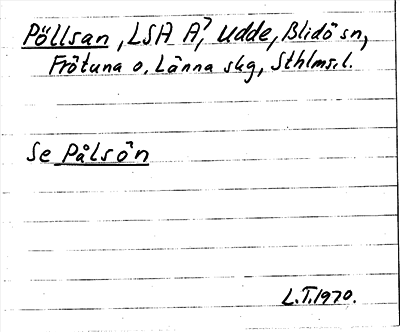 Pöllsan, LSA A?, udde, Blidö sn,
Frötuna o. Länna skg, Sthlms. l.
Se Pålsön
L.T. 1970.